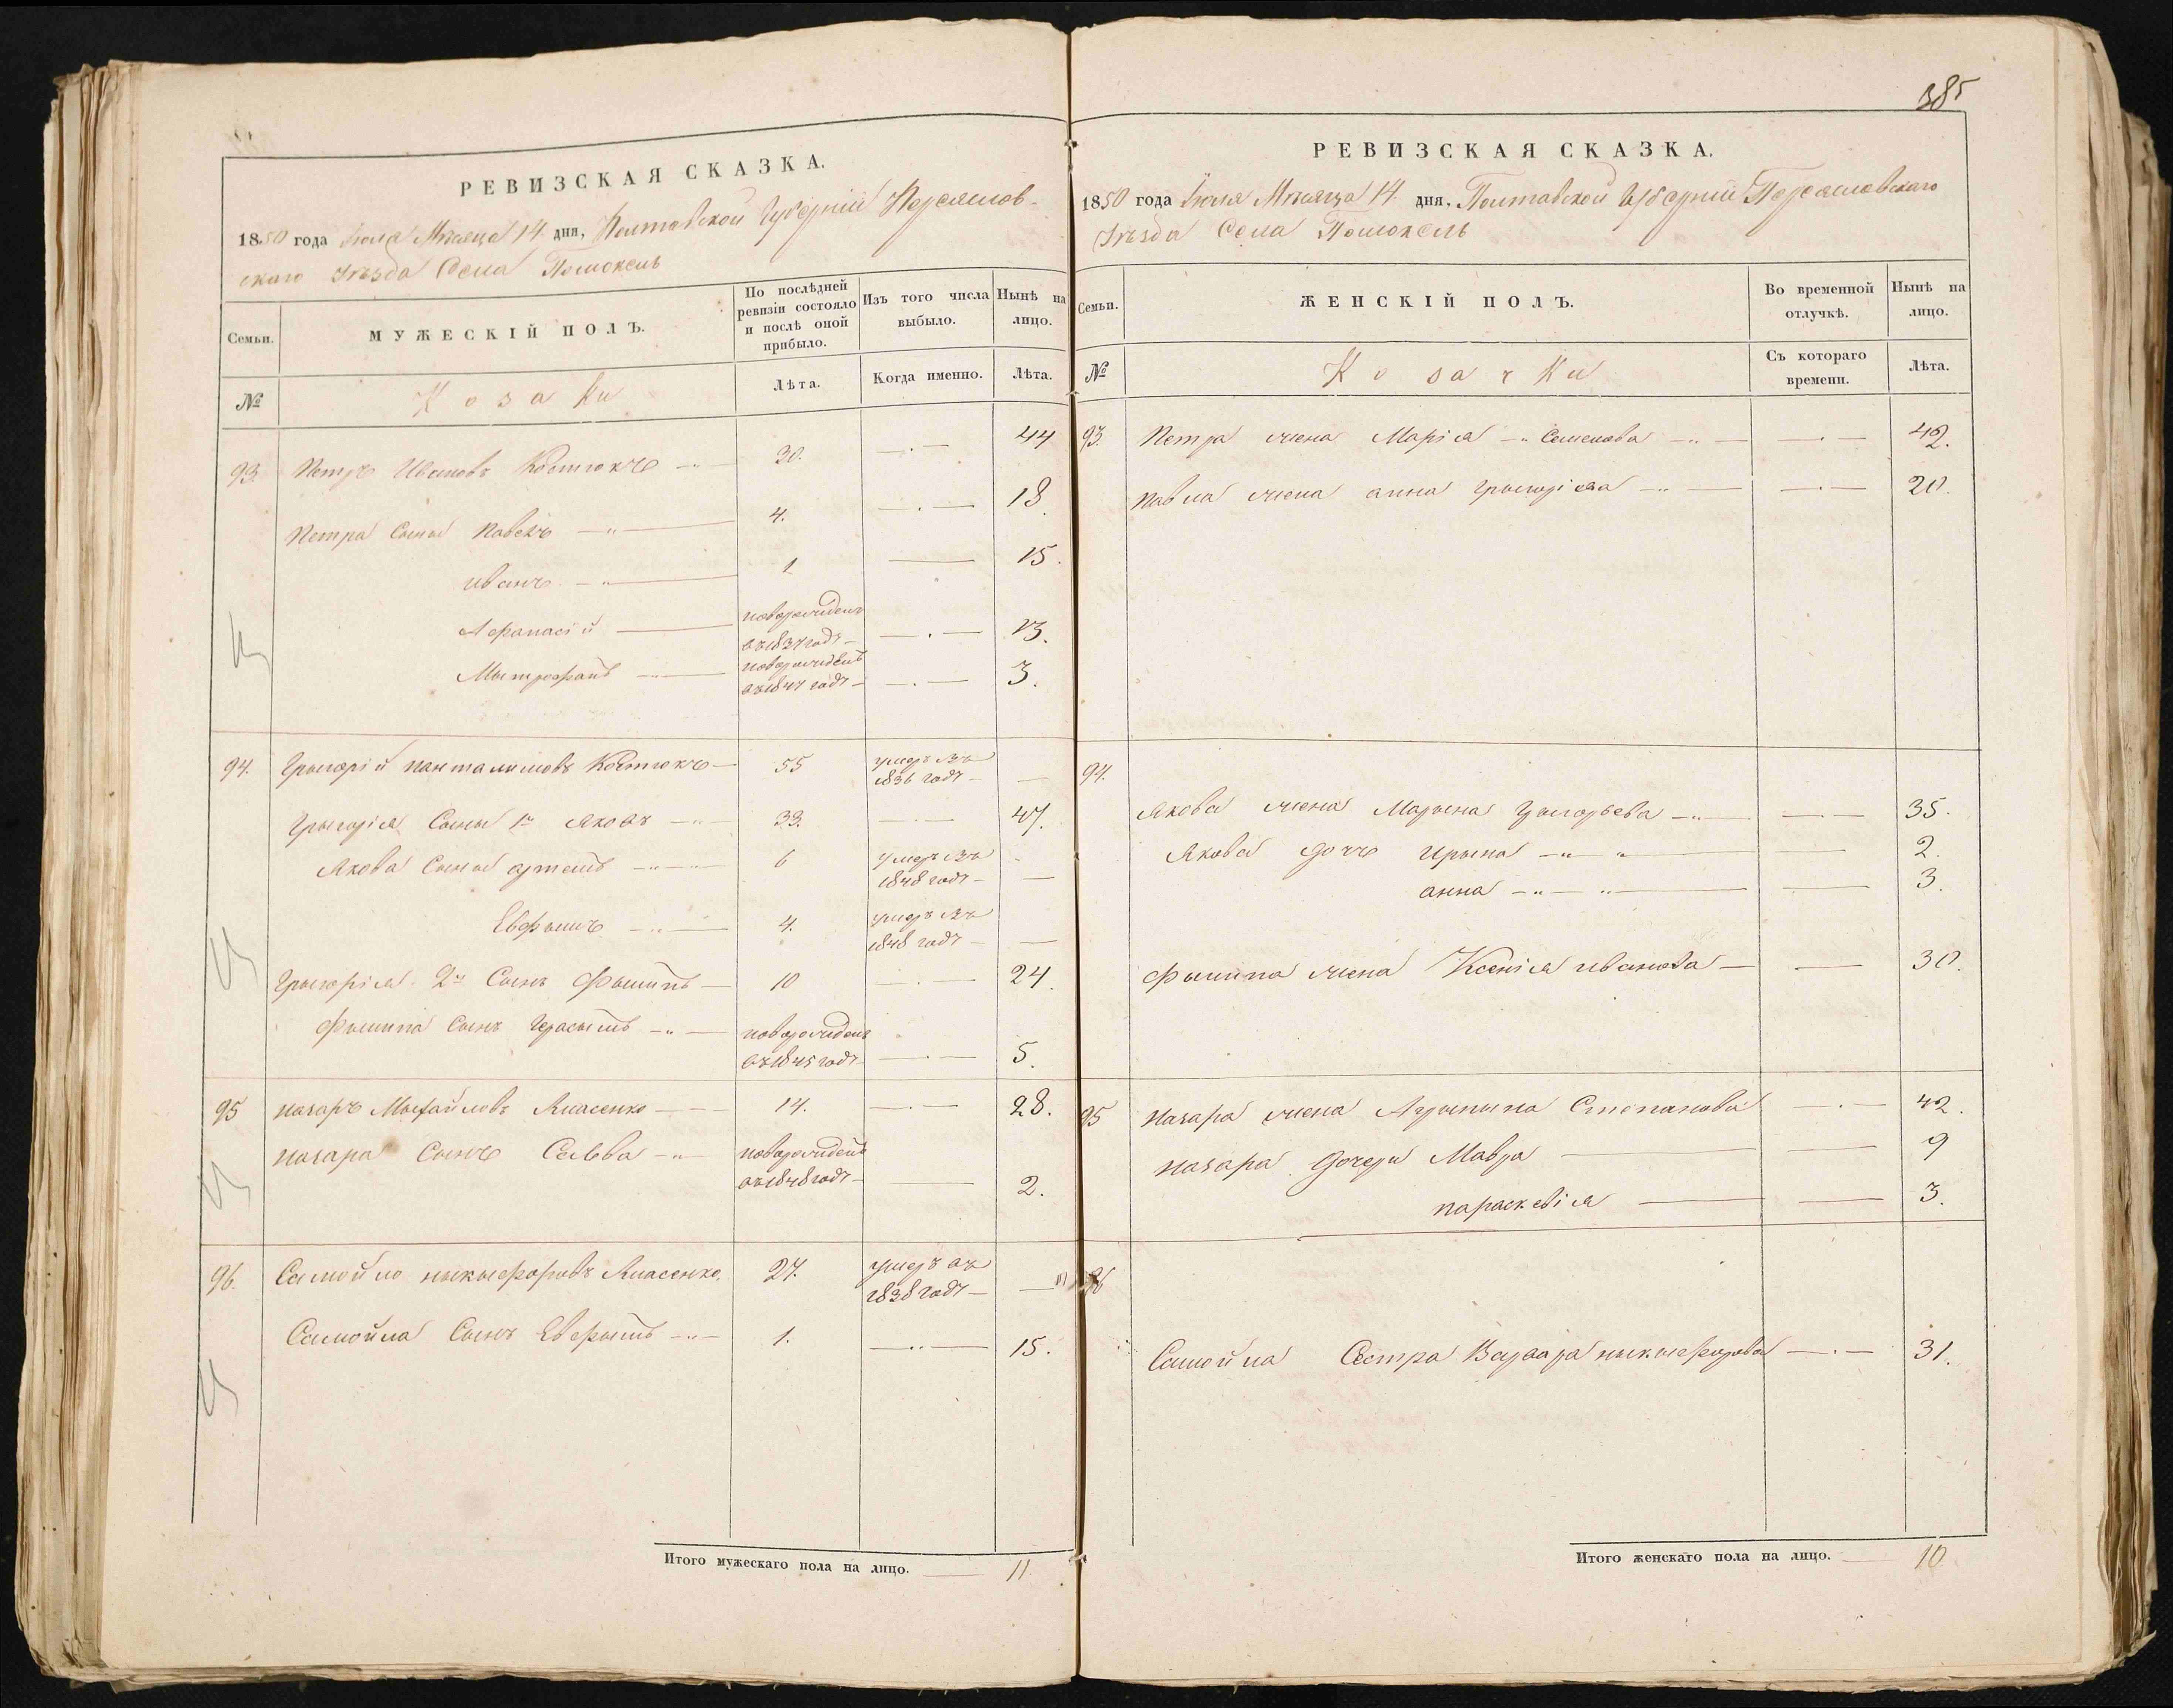 385
РЕВИЗСКАЯ СКАЗКА.
1850 года Июля Мѣсяца 14 дня, Полтавской Губерніи Переяслов-
скаго Уѣзда Села Помоклъ
Семьи. МУЖЕСКІЙ ПОЛЪ. По послѣдней ревизіи состояло и послѣ оной прибыло. Изъ того числа выбыло. Нынѣ на лицо.
№ Козаки Лѣта. Когда именно. Лѣта.
93. Петръ Ивановъ Костюкъ 30. 44
Петра Сыны Павелъ 4. 18
Иванъ 1 15.
Афанасій новорожденъ въ 1837 годѣ 13.
Мытрофанъ новорожденъ въ 1847 годѣ 3.
94. Грыгорій панталимовъ Костюкъ 55 умеръ въ 1836 годѣ
Грыгорія Сыны 1й Яковъ 33. 47.
Якова Сыны артемъ 6 умеръ въ 1848 годѣ
Евфымъ 4. умеръ въ 1848 годѣ
Грыгорія 2й Сынъ Фылипъ 10 24.
Фылипа Сынъ Герасымъ новорожденъ въ 1845 годѣ 5.
95 назаръ Мыхайловъ Ласенко 14. 28.
назара Сынъ Савва новорожденъ въ 1848 годѣ 2.
96. Самойло ныкыфоровъ Ласенко. 27. умеръ въ 1838 годѣ
Самойла Сынъ Евфымъ 1. 15.
Итого мужескаго пола на лицо. 11.
РЕВИЗСКАЯ СКАЗКА.
1850 года Июля Мѣсяца 14. дня, Полтавской Губерніи Переясловскаго
Уѣзда Села Помоклъ
Семьи. ЖЕНСКІЙ ПОЛЪ. Во временной отлучкѣ. Нынѣ на лицо.
№ Козачки Съ котораго времени. Лѣта.
93. Петра жена Марія Семенова 42.
Павла жена анна Грыгоріева 20.
94.
Якова жена Марына Грыгорьева 35.
Якова дочь Ирына 2.
анна 3.
Фылипа жена Ксенія иванова 30.
95 Назара жена Агрыпына Степанова 42.
назара дочери Мавра 9
параскевія 3.
96
Самойла Сестра Варвара ныкыфорова 31.
Итого женскаго пола на лицо. 10